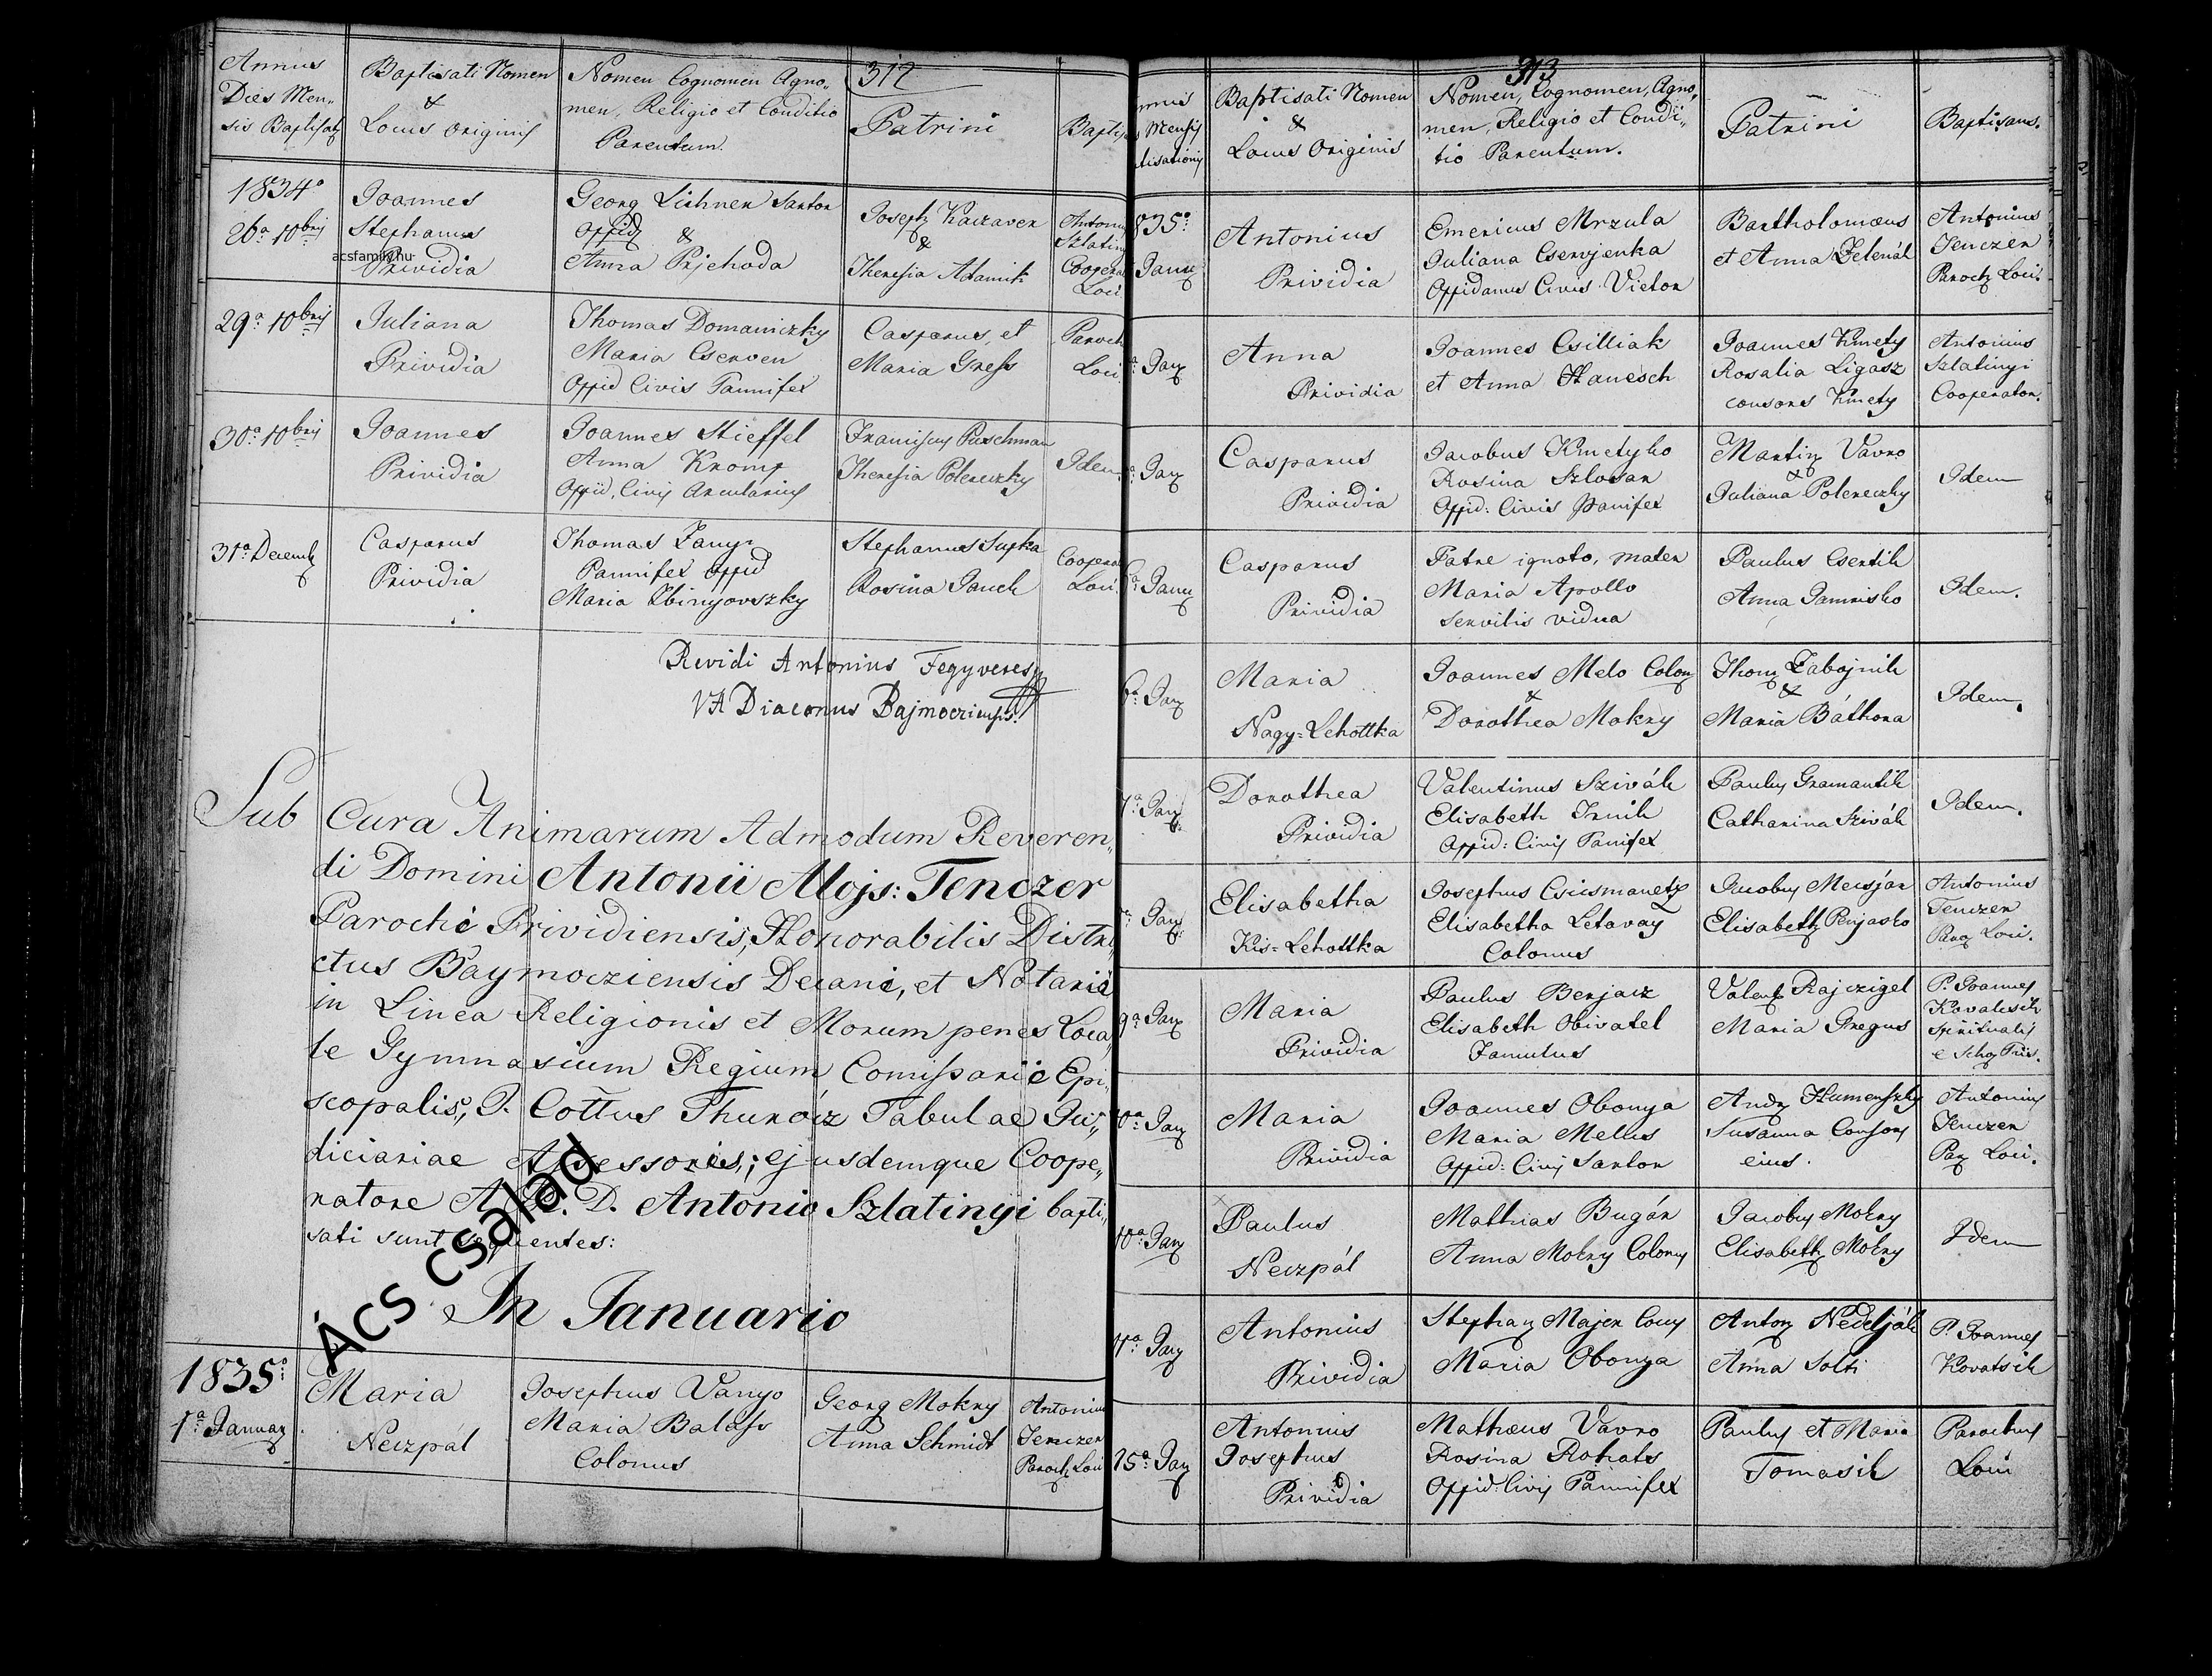 312
Annus
Dies Men„
sis Baptisatj
Baptisati Nomen
&
Locus originis
Nomen Cognomen Agno„
men, Religio et Conditio
Parentum.
Patrini
Baptis
1834º
26ª 10bris
Joannes
Stephanus
Prividia
acsfamily.hu
Georg Lishner Sartor
Oppid &
Anna Prjehoda
Joseph Kaczaver
&
Theresia Adamik
Antoniu
Szlatin
Coopera
Loci
29ª 10bris
Juliana
Prividia
Thomas Domaniczky
Maria Cserven
Oppid Civis Pannifex
Casparus, et
Maria Gress
Paroch
Loci
30ª 10bris
Joannes
Prividia
Joannes Stieffel
Anna Kromp
Oppid, Civis Arcularius
Franciscus Purschman
Theresia Polereczky
Idem
31ª Decemb
Casparus
Prividia
Thomas
Pannifex Oppid
Maria Zbinyovszky
Stephanus Supka
Rosina Jauch
Coopera
Loci
Revidi Antonius Fegyveresy
VA Diaconus Bajmocziensis.
Sub Cura Animarum Admodum Reveren„
di Domini Antonii Alojs: Tenczer
Parochi Prividiensis, Honorabilis Distri„
ctus Baymocziensis Decani, et Notarii
in Linea Religionis et Morum penes Loca„
le Gymnasium Regium Comissarii Epi„
scopalis, I. Cottus Thurócz Tabulae Ju„
diciariae Assessoris, ejusdemque Coope„
ratore A. R. D. Antonio Szlatinyi bapti„
sati sunt sequentes:
In Januario
Ács család
1835º:
1ª Januar
Maria
Neczpál
Josephus Vanyo
Maria Balass
Colonus
Georg Mokry
Anna Schmidt
Antonius
Tenczer
Paroch Loci
313
nnus
Mensis
tisationis
Baptisati Nomen
&
Locus Originis
Nomen, Cognomen, Agno„
men, Religio et Condi„
tio Parentum.
Patrini
Baptisans.
835º:
Janu
Antonius
Prividia
Emericus Mrzula
Juliana Cservjenka
Oppidanus Civis Vietor
Bartholomæus
et Anna Zelenák
Antonius
Tenczer
Paroch Loci
Jan
Anna
Prividia
Joannes Csilliak
et Anna Hanesch
Joannes Kmety
Rosalia Ligasz
consors Kmety
Antonius
Szlatinyi
Cooperator.
Jan
Casparus
Prividia
Jacobus Kmetyko
Rosina Szlosar
Oppid: Civis Panifex
Martin Vavro
&
Juliana Polereczky
Idem
Janu
Casparus
Prividia
Patre ignoto, mater
Maria Apollo
servilis vidua
Paulus Csertik
Anna Jamrisko
Idem.
6ª Jan
Maria
Nagy=Lehottka
Joannes Melo Colon
&
Dorothea Mokry
Thom Zabojnik
&
Maria Báthora
Idem.
7ª Jan
Dorothea
Prividia
Valentinus Szivák
Elisabeth Trnik
Oppid: Civis Panifex
Paulus Gramantik
Catharina Szivák
Idem.
Jan
Elisabetha
Kis=Lehottka
Josephus Csicsmanetz
Elisabetha Letavay
Colonus
Jacobus Mecsjar
Elisabeth Penjasko
Antonius
Tenczer
Par Loci.
9ª Jan
Maria
Prividia
Paulus Benjacz
Elisabeth Obivatel
Famulus
Valent Rajczigel
Maria Gregus
P. Joannes
Kovatsik
Spiritualis
e Schol Piis.
10ª Jan
Maria
Prividia
Joannes Obonya
Maria Mellus
Oppid: Civis Sartor
Andr Humenszky
Susanna Consors
eius.
Antonius
Tenczer
Par Loci.
10ª Jan
Paulus
Neczpál
Mathias Bugár
Anna Mokry Colonus
Jacobus Mokry
Elisabeth Mokry
Idem
11ª Jan
Antonius
Prividia
Stephan Majer
Maria Obonya
Anton Nedeljak
Anna Solti
P. Joannes
Kovatsik
15ª Jan
Antonius
Josephus
Prividia
Mathæus Vavro
Rosina Rohats
Oppid: Civis Pannifex
Paulus et Maria
Tomasik
Parochus
Loci